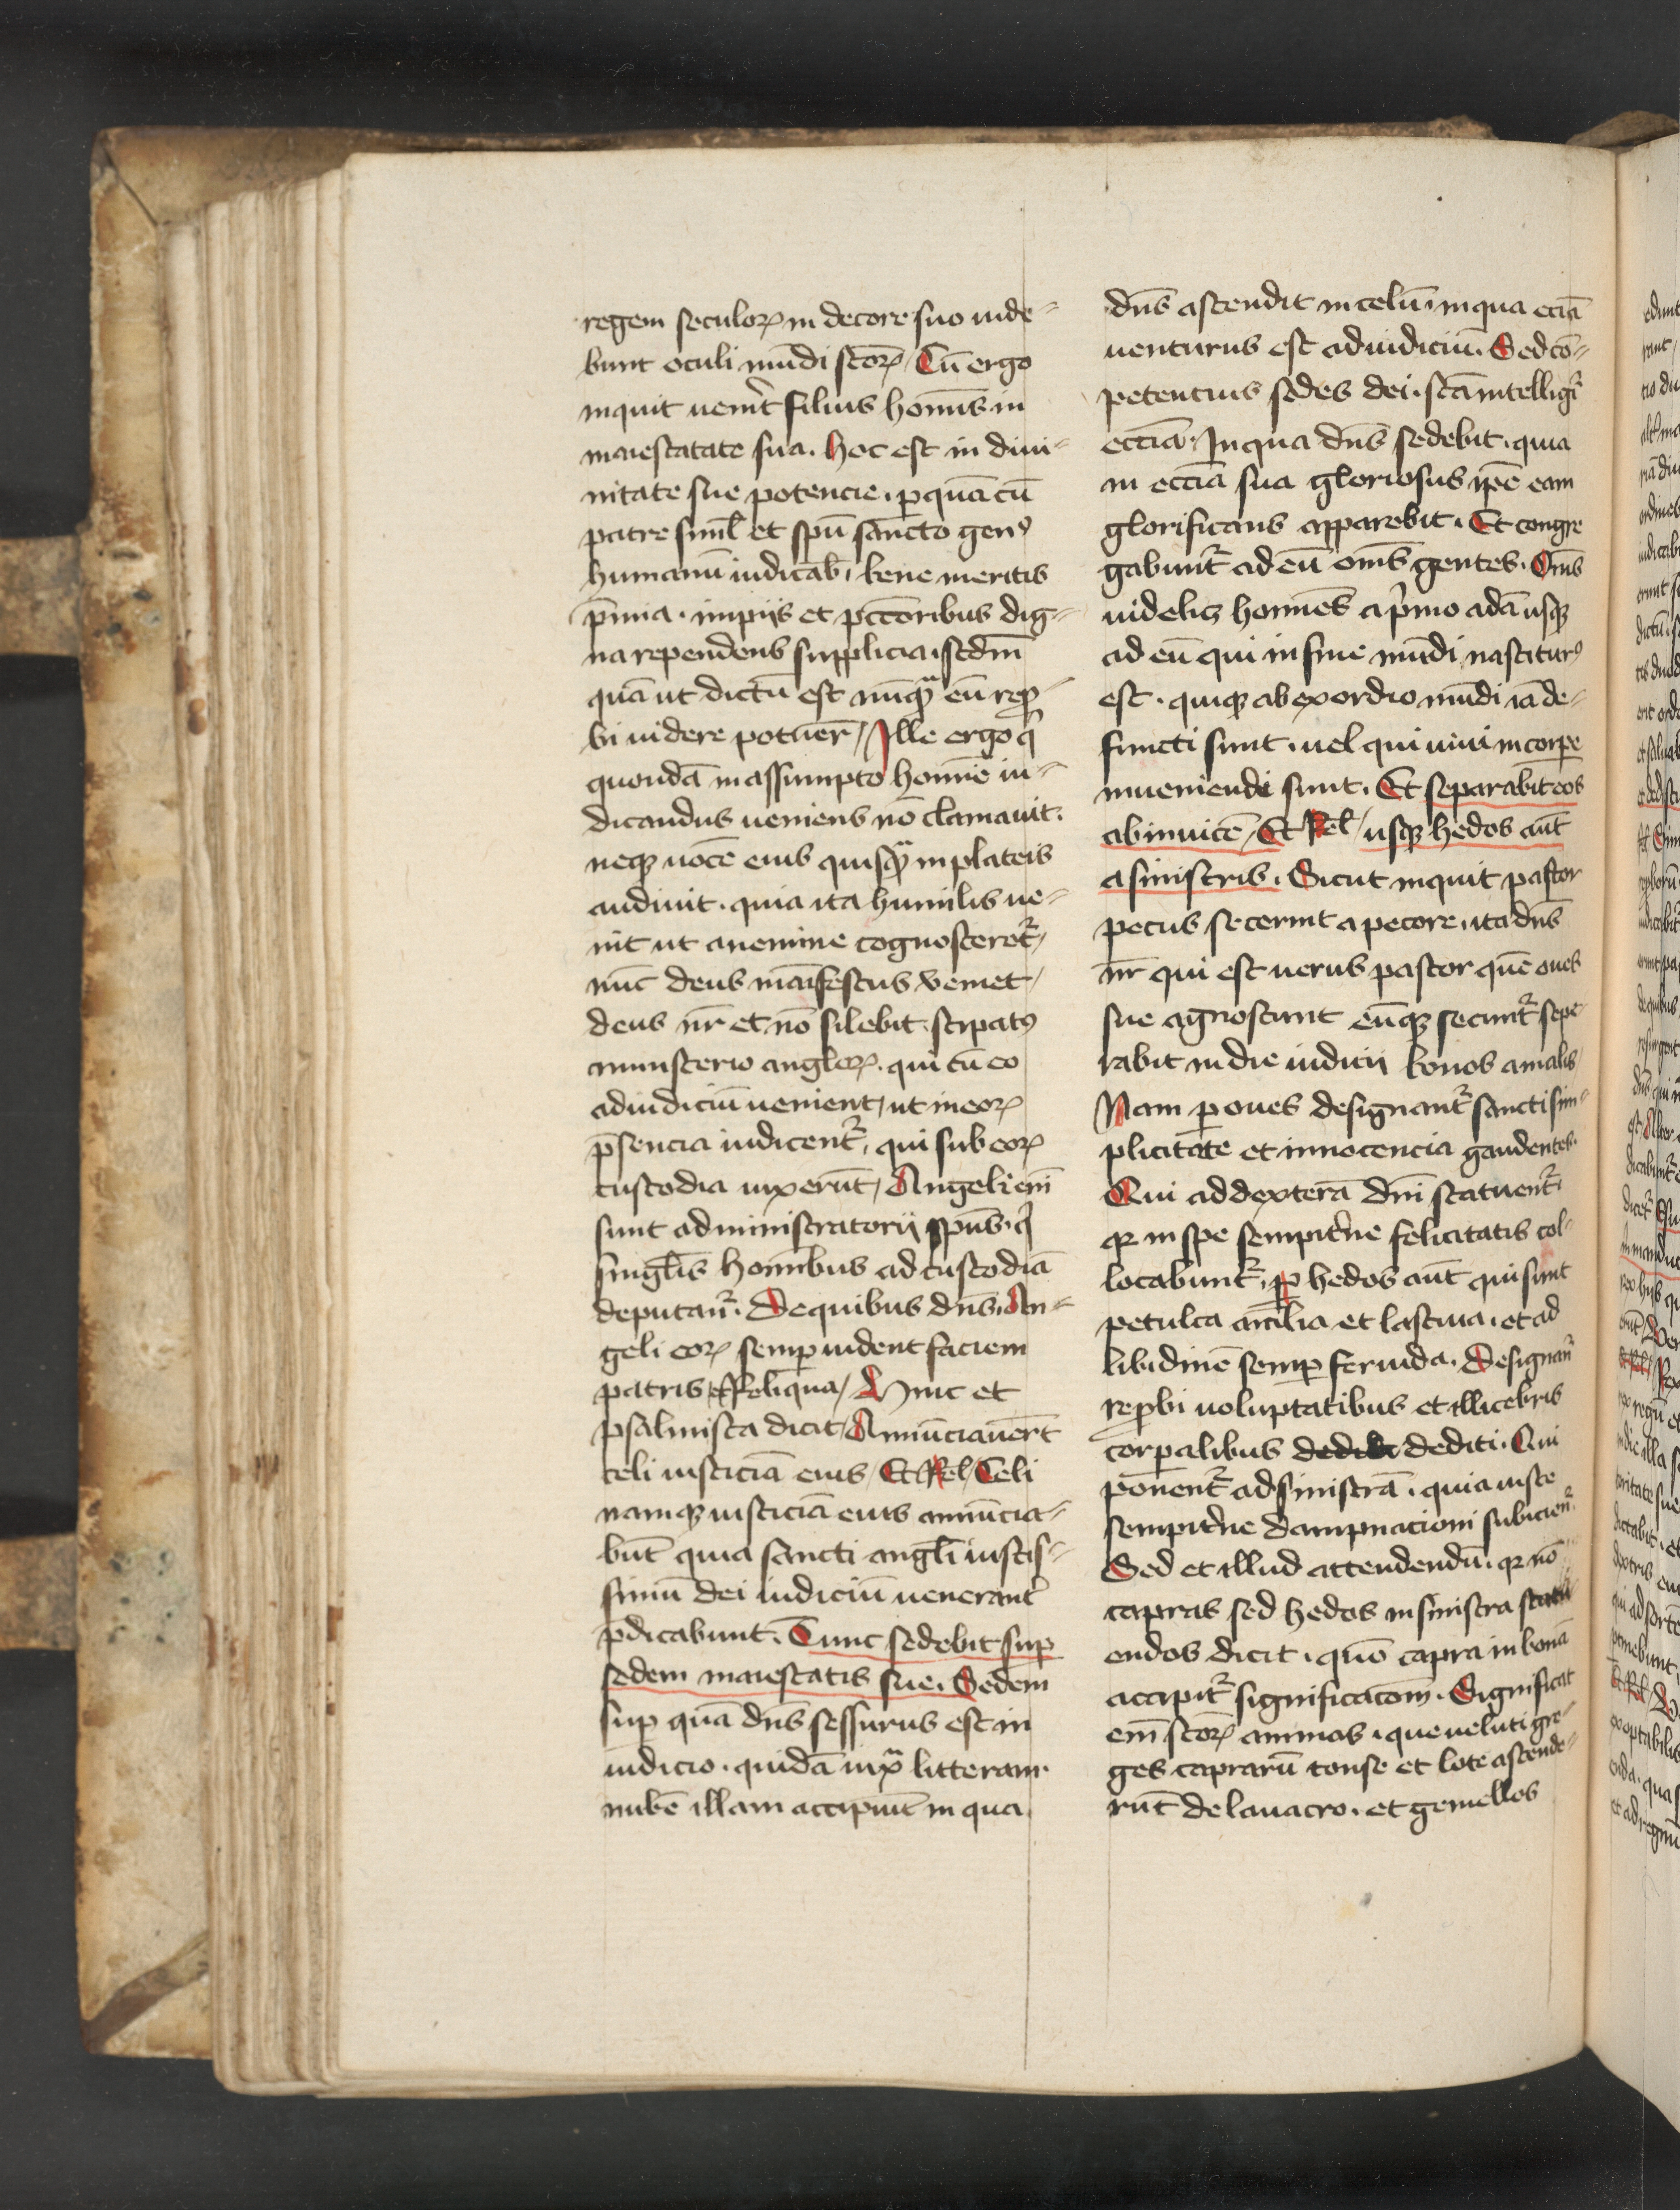 regem seculoꝝ in decore suo uide-
bunt oculi mūdi sc̄oꝝ / Cū ergo
inquit uenīt filius hoīnis in
maiestatate sua . hoc est in diui-
nitate sue potencie . ꝑ quā cū
patre siml̄ et spū sancto genꝰ
humanū iudicab̄ , bene meritis
p̄mia . impijs et pctōribus dig-
na rependens supplicia , sc̄dm
quā ut dictū est nūqᷓ eū repꝛo-
bi uidere potuer̄ / Ille ergo qͥ
quondā in assumpto hoīne iu-
dicandus ueniens nō clamauit .
neqꝫ uocē eius quisqᷓ in plateis
audiuit . quia ita humilis ue-
nit ut a nemine cognosceret᷑ /
nūc deus manifestus veniet /
deus nr̄ et nō silebit . stipatꝰ
ministerio angeloꝝ . qui cū eo
ad iudiciū uenient / ut in eoꝝ
p̄sencia iudicent᷑ , qui sub eoꝝ
custodia uixerūt / Angeli em̄
sunt administratorij spūs . qͥ
singl̄is hoīnibus ad custodiā
deputan᷑ . De quibus dn̄s . An-
geli eoꝝ semꝑ uident faciem
patris et reliqua / Hinc et
psalmista dicit / Annūciauer̄t
celi iusticiā eius / Et Rel̄ / Celi
namqꝫ iusticiā eius annūcia-
būt quia sancti angl̄i iustis-
simū dei iudiciū uenerant᷑
p̄dicabunt . Tunc sedebit suꝑ
sedem maiestatis sue . Sedem
suꝑ quā dn̄s sessurus est in
iudicio . quidā iuxᷓ litteram .
nubē illam accipiūt in qua
dn̄s ascendit in celū , in qua eciā
uenturus est ad iudiciū . Sed cō-
petencius sedes dei . sc̄a intelligit᷑
ecc̄ia . In qua dn̄s sedebit , quia
in ecc̄ia sua gloriosus ip̄e eam
glorificans apparebit . Et congre
gabunt᷑ ad eū om̄s gentes . Om̄s
uidelꝫ hoīnes a pͥmo adā usqꝫ
ad eū qui in fine mūdi nasciturꝰ
est . quiqꝫ ab exordio mūdi iā de-
functi sunt . uel qui uiui in corꝑe
inueniendi sunt . Et separabit eos
abinuicē / Et Rel̄ / usqꝫ hedos aūt
a sinistris . Sicut inquit pastor
pecus secernit a pecore . ita dn̄s
nr̄ qui est uerus pastor quē oues
sue agnoscunt eūqꝫ secunt᷑ sepe-
rabit in die iudicij bonos a malis
Nam ꝑ oues designant᷑ sancti sim-
plicitate et innocencia gaudentes .
Qui ad dexterā dn̄i statuent᷑ .
qꝛ in spe sempit̉ne felicitatis col-
locabunt᷑ . ꝑ hedos aūt qui sunt
petulca aīalia et lasciua . et ad
libidinē semꝑ feruida . Designan᷑
reꝓbi uoluptatibus et illicebris
corꝑalibus dediti . Qui
ponent᷑ ad sinistrā . quia iuste
sempit̉ne dampnacioni subician᷑
Sed et illud attendendū . qꝛ nō
capras sed hedos in sinistra statu-
endos dicit . quō capra in bonā
accipit᷑ significacōm . Significat
em̄ sc̄oꝝ animas . que ueluti gre-
ges caprarū tonse et lote ascende-
rūt de lauacro . et gemellos